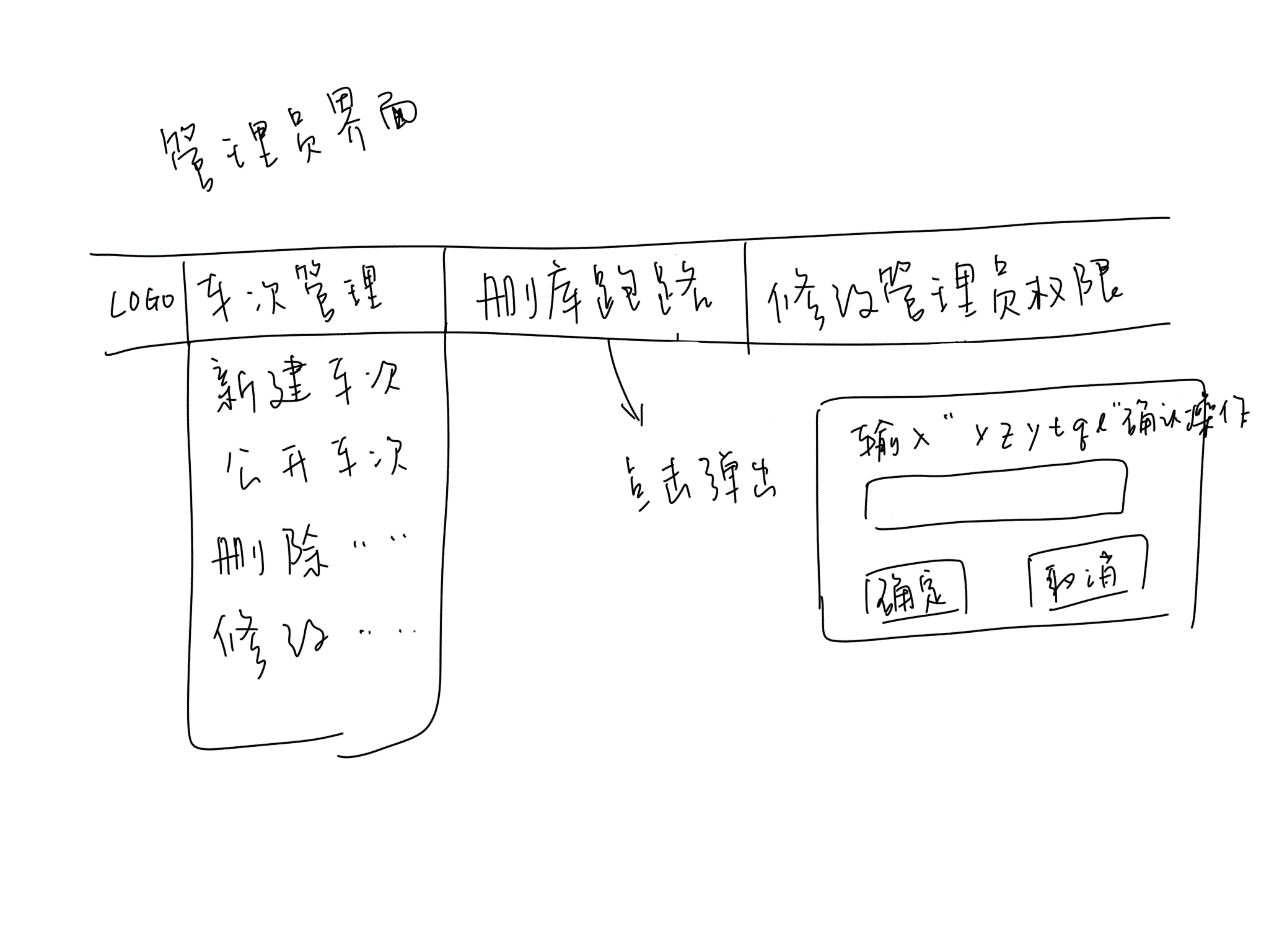 管理员界面
LOGO 车次管理 删库跑路 修改管理员权限
新建车次
公开车次
删除……
修改……
点击弹出
输入“xzytql”确认操作
确定 取消